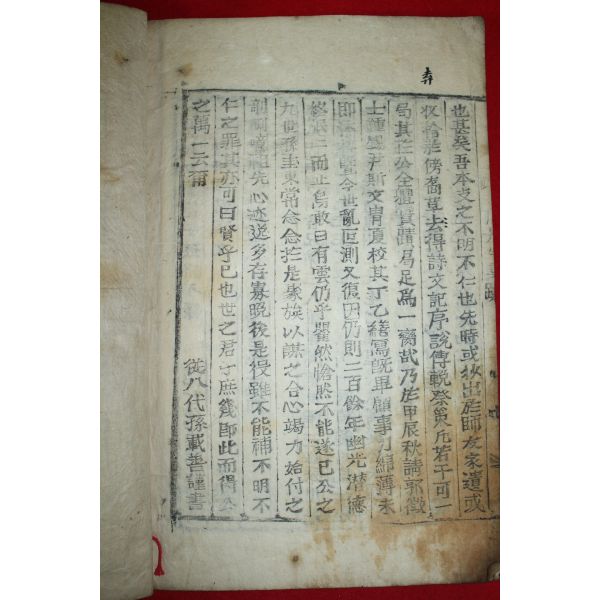 也甚矣吾本支之不明不仁也先時或狄出於師友家遺或
收拾於傍裔草去得詩文記序說傳輓祭竟凡若干可一
局其於公全獨賁蹟局足爲一臠哉乃於甲辰秋請郭徵
士鍾錫尹斯文冑夏校其丁乙繕寫旣畢顧事力綿薄未
即梓 曁今世亂叵測又復因仍則二百餘年幽光潛德
終泯 而止烏敢曰有雲仍乎瞿然愴然不能遂已公之
九世孫圭東常念念於是褎族以謀之合心竭力始付之
剞劂噫祖先心迹逸多存寡晩後是役雖不能補不明不
仁之罪其亦可曰賢乎已也世之君子庶幾即此而得公
之萬一云爾
從八代孫載善謹書
弁